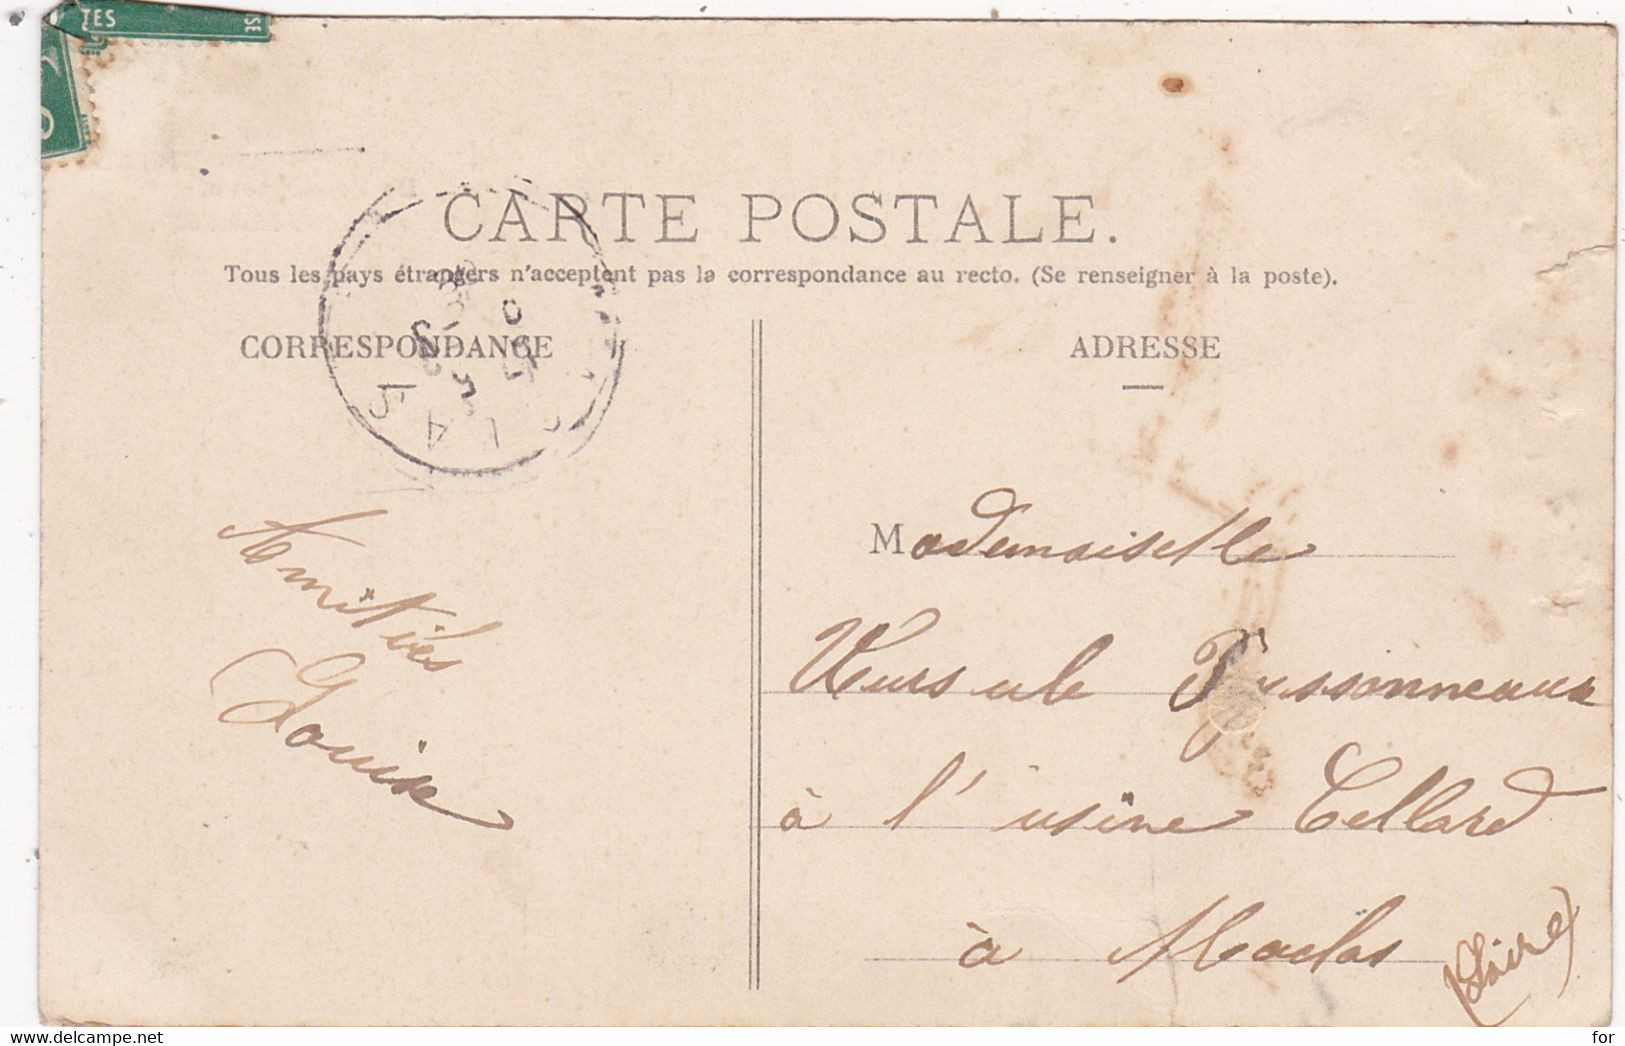 TES
SE
CARTE POSTALE.
Tous les pays étrangers n'acceptent pas la correspondance au recto. (Se renseigner à la poste).
CORRESPONDANCE
ADRESSE
Amitiés
Louise
Mademoiselle
Yssonneaux
à l'usine Cellard
à Maclas
(Loire)
www.delcampe.net
for